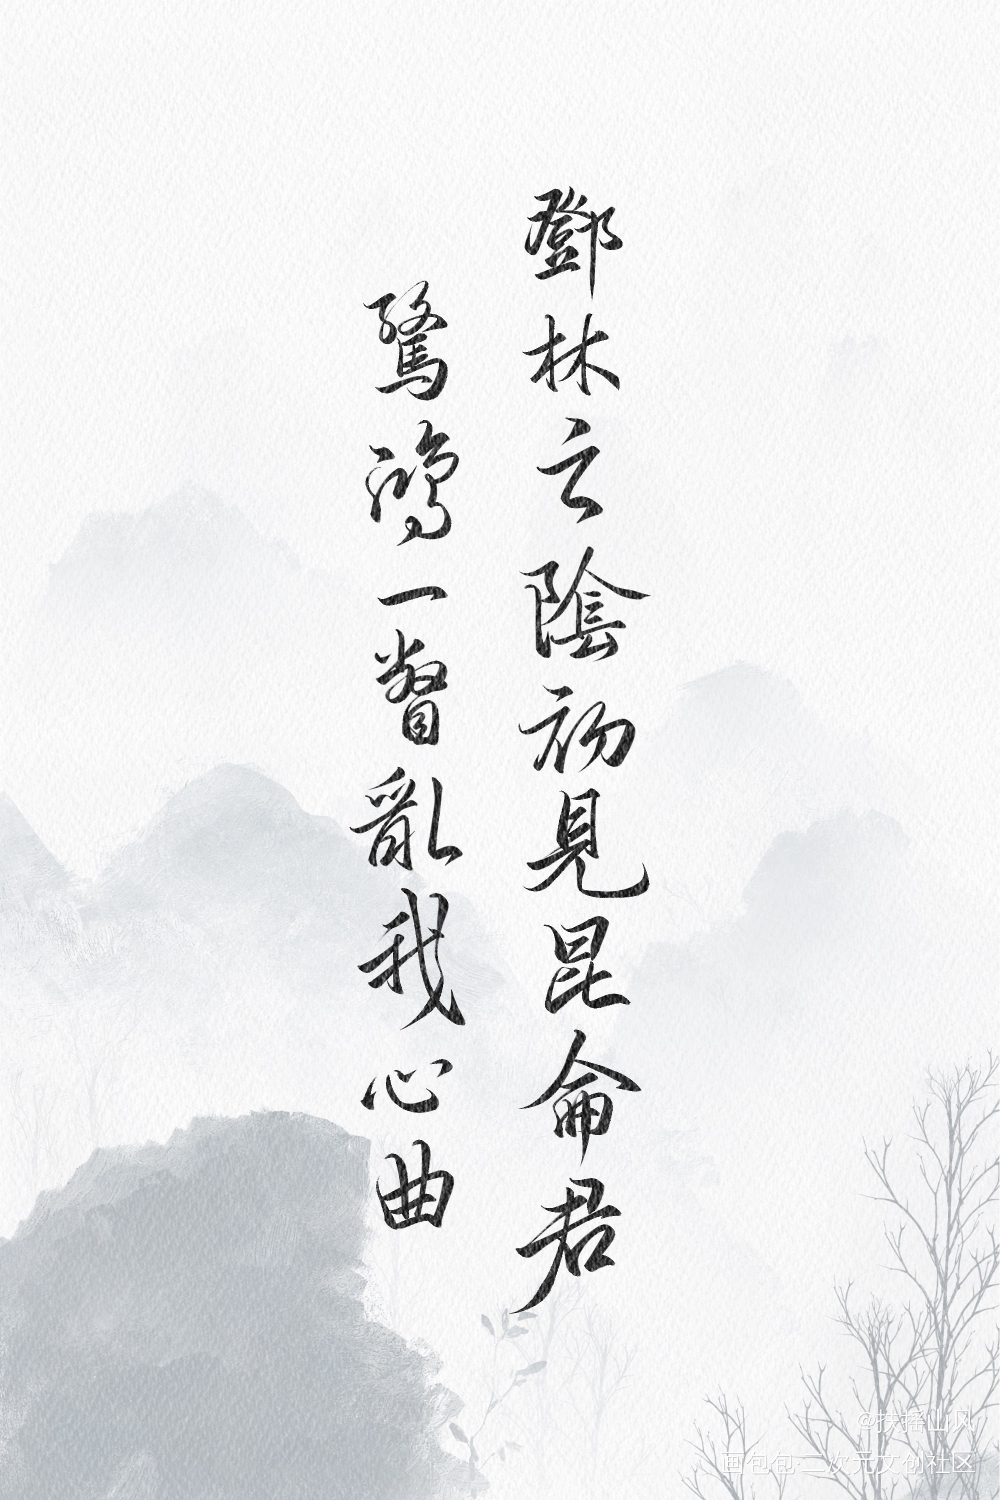 鄧林云陰初見昆侖君
驚鴻一瞥亂我心曲
@扶摇山风
画包包·二次元文创社区